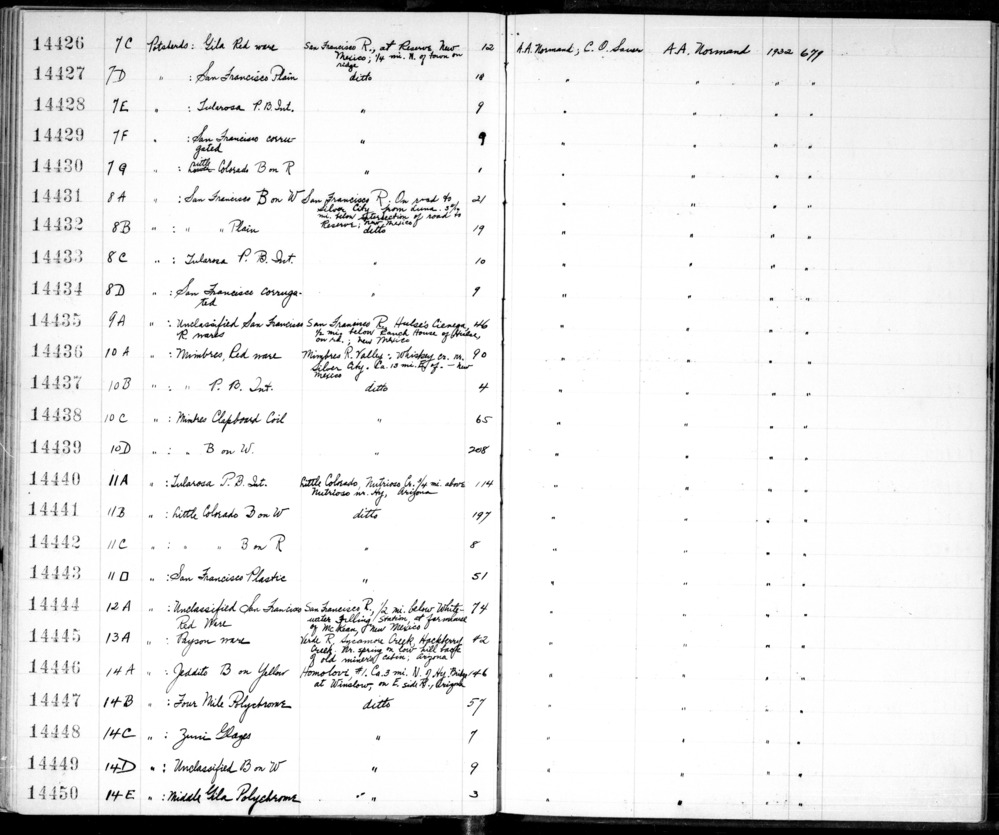 14426 7C Potsherds: Gila Red ware San Francisco R., at Reserve, New 12 A.A. Normand; C.O. Sauer A.A. Normand 1932 679
Mexico; 1/4 mi. N. of town on
ridge
14427 7D " : San Francisco Plain ditto 10 " " " "
14428 7E " : Tularosa P.B. Int. " 9 " " " "
14429 7F " : San Francisco corru- " 9 " " " "
gated
14430 7G " : Little Colorado B on R " 1 " " " "
14431 8A " : San Francisco B on W San Francisco R. On road to 21 " " " "
Silver City from Luna.
mi. below intersection of road to
Reserve; New Mexico
14432 8B " : " " Plain ditto 19 " " " "
14433 8C " : Tularosa P. B. Int. " 10 " " " "
14434 8D " : San Francisco corruga- " 9 " " " "
ted
14435 9A " : Unclassified San Francisco San Francisco R. Hulse's Cienega, 46 " " " "
R wares 1/2 mi. below Ranch House of Hulse,
on rd.; New Mexico
14436 10A " : Mimbres, Red ware Mimbres R. Valley: Whiskey Cr. nr. 90 " " " "
Silver City. Ca. 13 mi. of. - New
Mexico
14437 10B " : " P. B. Int. ditto 4 " " " "
14438 10C " : Mimbres Clapboard Coil " 65 " " " "
14439 10D " : " B on W. " 208 " " " "
14440 11A " : Tularosa P.B. Int. Little Colorado, Nutrioso Cr. 1/4 mi. above 114 " " " "
Nutrioso nr. Hy, Arizona
14441 11B " : Little Colorado B on W ditto 197 " " " "
14442 11C " : " " B on R " 8 " " " "
14443 11D " : San Francisco Plastic " 51 " " " "
14444 12A " : Unclassified San Francisco San Francisco R., 1/2 mi. below White- 74 " " " "
Red Ware water Filling Station, at farmhouse
of McKean, New Mexico
14445 13A " : Payson ware Verde R, Sycamore Creek, Hackberry #2 " " " "
Creek. Nr. spring on low hill back
of old miners cabin; Arizona
14446 14A " : Jeddito B on Yellow Homolovi, #1. Ca. 3 mi. N. of Hy. Bridge 146 " " " "
at Winslow, on E. side R., Arizona
14447 14B " : Four Mile Polychrome ditto 57 " " " "
14448 14C " : Zuni Glazes " 7 " " " "
14449 14D " : Unclassified B on W " 9 " " " "
14450 14E " : Middle Gila Polychrome " 3 " " " "